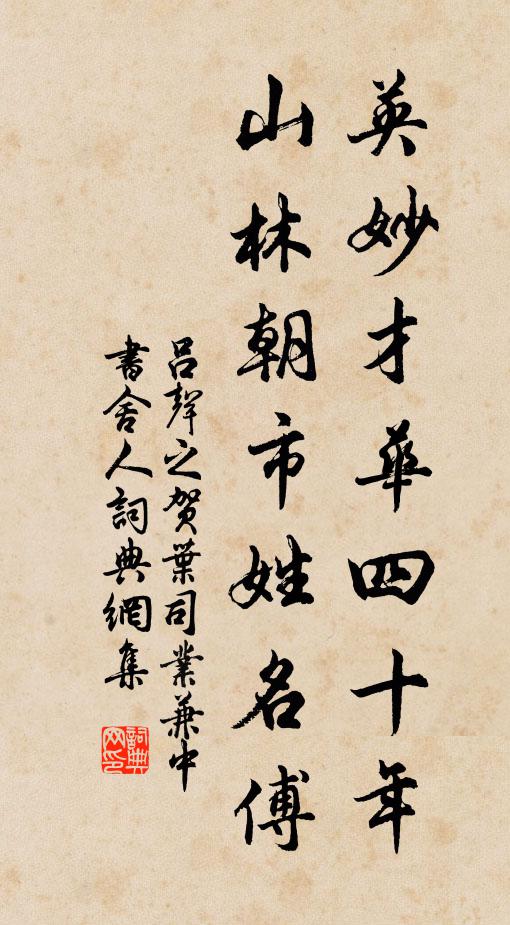 英妙才華四十年
山林朝市姓名傅
呂聲之賀葉司業兼中
書舍人詞典網集
詞典
网印